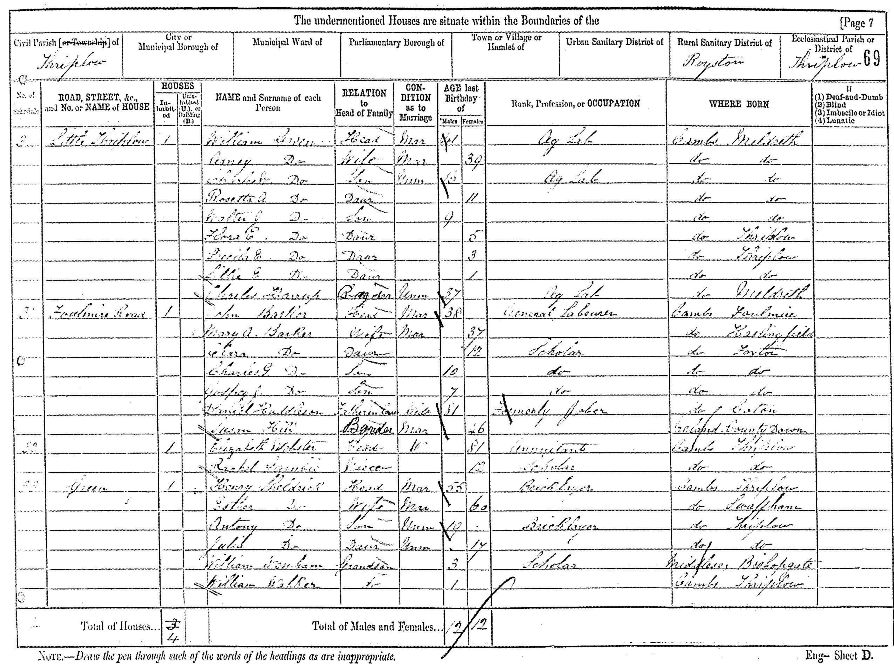 The undermentioned Houses are situate within the Boundaries of the [Page 7
Civil Parish [or Township] of
City or Municipal Borough of
Municipal Ward of
Parliamentary Borough of
Town or Village or Hamlet of
Urban Sanitary District of
Rural Sanitary District of
Ecclesiastical Parish or District of
Thriplow Royston Thriplow 69
No. of Schedule
ROAD, STREET, &c., and No. or NAME of HOUSE
HOUSES
Inhabited
Uninhabited (U.), or Building (B.)
NAME and Surname of each Person
RELATION to Head of Family
CONDITION as to Marriage
AGE last Birthday of
Males Females
Rank, Profession, or OCCUPATION
WHERE BORN
If
(1) Deaf-and-Dumb
(2) Blind
(3) Imbecile or Idiot
(4) Lunatic
Little Thriplow 1 William Head Mar 41 Ag Lab Cambs Meldreth
Do Wife Mar 39 do do
Do Son Unm Ag Lab do do
Rosetta A Do Daur 11 do do
Walter Do Son 9 do do
Flora E Do Daur 5 do Thriplow
Do Daur 3 do Thriplow
Do Daur 1 do do
Charles Unm 37 Ag Lab do Meldreth
Foulmire Road 1 John Barker Head Mar 38 General Labourer Cambs Foulmire
Mary A. Barker Wife Mar 37 do Haslingfield
Clara Do Daur 12 Scholar do Foxton
Charles G Do Son 10 do do do
Do Son 7 do do do
Daniel 81 Formerly do
Susan Hill Mar 26 Ireland County Down
1 Elizabeth Head W 81 Annuitant Cambs Thriplow
Rachel Niece 12 Scholar do do
Green 1 Henry Head Mar 55 Bricklayer Cambs Thriplow
Esther Do Wife Mar 60 do Swaffham
Antony Do Son Unm 19 Bricklayer do Thriplow
Julia Do Daur Unm 14 do do
William Grandson 3 Scholar Middlesex Bishopsgate
William Walker do 1 Cambs Thriplow
Total of Houses... 4 Total of Males and Females... 12 12
NOTE.—Draw the pen through such of the words of the headings as are inappropriate. Eng—Sheet D.